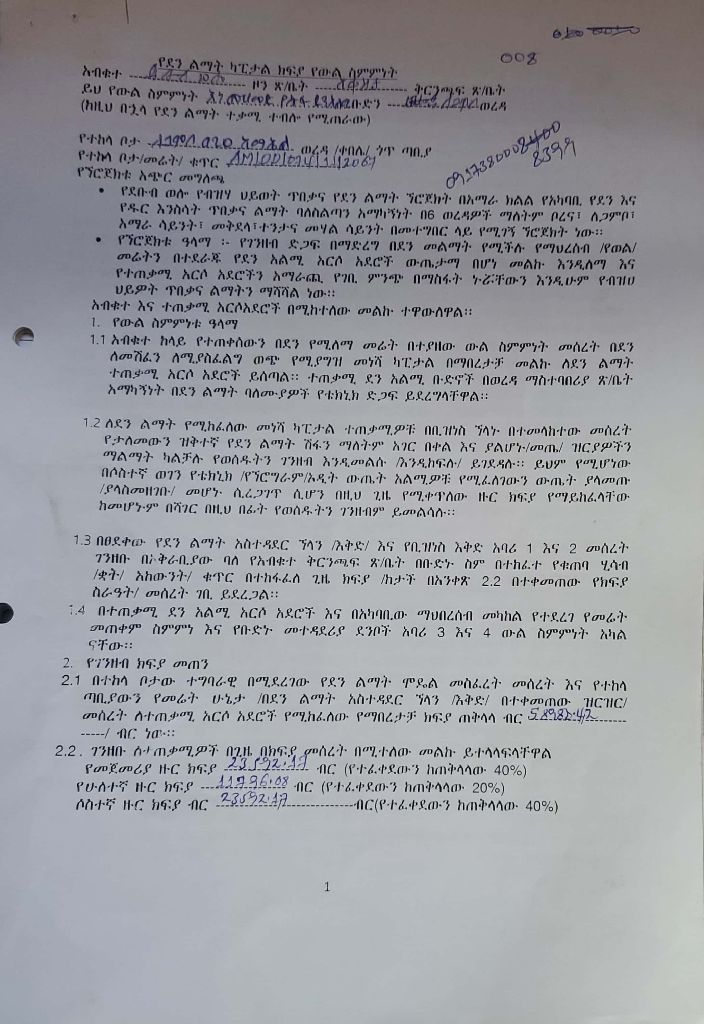 008
የደን ልማት ካፒታል ክፍያ የውል ስምምነት
አብቁተ ዞን ጽ/ቤት ቅርንጫፍ ጽ/ቤት
ይህ የውል ስምምነት ቡድን ወረዳ
(ከዚህ በኋላ የደን ልማት ተቃሚ ተብሎ የሚጠራው)
የተከላ ቦታ ወረዳ /ቀበሌ/ ጎጥ ጣቢያ
የተከላ ቦታ/መሬት/ ቁጥር
8399
የኘሮጀክቱ አጭር መግለጫ
• የደቡብ ወሎ የብዝሃ ህይወት ጥበቃና የደን ልማት ኘሮጀክት በአማራ ክልል የአካባቢ የደን እና
የዱር እንስሳት ጥበቃና ልማት ባለስልጣን አማካኝነት በ6 ወረዳዎች ማለትም ቦረና፣ ሌጋምቦ፣
አማራ ሳይንት፣ መቅደላ፣ተንታና መሃል ሳይንት በመተግበር ላይ የሚገኝ ኘሮጀክት ነው።
• የኘሮጀክቱ ዓላማ ፡- የገንዘብ ድጋፍ በማድረግ በደን መልማት የሚችሉ የማህረሰብ /የወል/
መሬትን በተደራጁ የደን አልሚ አርሶ አደሮች ውጤታማ በሆነ መልኩ እንዲለማ እና
የተጠቃሚ አርሶ አደሮችን አማራጪ የገቢ ምንጭ በማስፋት ኑሯቸውን እንዲሁም የብዝሀ
ህይዎት ጥበቃና ልማትን ማሻሻል ነው።
አብቁተ እና ተጠቃሚ አርሶአደሮች በሚከተለው መልኩ ተዋውለዋል።
1. የውል ስምምነቱ ዓላማ
1.1 አብቁተ ከላይ የተጠቀሰውን በደን የሚለማ መሬት በተያዘው ውል ስምምነት መሰረት በደን
ለመሸፈን ለሚያስፈልግ ወጭ የሚያግዝ መነሻ ካፒታል በማበረታቻ መልኩ ለደን ልማት
ተጠቃሚ አርሶ አደሮች ይሰጣል። ተጠቃሚ ደን አልሚ ቡድኖች በወረዳ ማስተባበሪያ ጽ/ቤት
አማካኝነት በደን ልማት ባለሙያዎች የቴክኒክ ድጋፍ ይደረግላቸዋል።
1.2 ለደን ልማት የሚከፈለው መነሻ ካፒታል ተጠቃሚዎቹ በቢዝነስ ኘላኑ በተመላከተው መሰረት
የታለመውን ዝቅተኛ የደን ልማት ሽፋን ማለትም አገር በቀል እና ያልሆኑ/መጤ/ ዝርያዎችን
ማልማት ካልቻሉ የወሰዱትን ገንዘብ እንዲመልሱ /እንዲከፍሉ/ ይገደዳሉ። ይህም የሚሆነው
በሶስተኛ ወገን የቴክኒክ /የኘሮግራም/ኦዲት ውጤት አልሚዎቹ የሚፈለገውን ውጤት ያላመጡ
/ያላስመዘገቡ/ መሆኑ ሲረጋገጥ ሲሆን በዚህ ጊዜ የሚቀጥለው ዙር ክፍያ የማይከፈላቸው
ከመሆኑም በሻገር በዚህ በፊት የወሰዱትን ገንዘብም ይመልሳሉ።
1.3 በፀደቀው የደን ልማት አስተዳደር ኘላን /እቅድ/ እና የቢዝነስ እቅድ አባሪ 1 እና 2 መሰረት
ገንዘቡ በአቅራቢያው ባለ የአብቁተ ቅርንጫፍ ጽ/ቤት በቡድኑ ስም በተከፈተ የቁጠባ ሂሳብ
/ቋት/ አካውንት/ ቁጥር በተከፋፈለ ጊዜ ክፍያ /ከታች በአንቀጽ 2.2 በተቀመጠው የክፍያ
ስራዓት/ መሰረት ገቢ ይደረጋል።
1.4 በተጠቃሚ ደን አልሚ አርሶ አደሮች እና በአካባቢው ማህበረሰብ መካከል የተደረገ የመሬት
መጠቀም ስምምነ እና የቡድኑ መተዳደሪያ ደንቦች አባሪ 3 እና 4 ውል ስምምነት አካል
ናቸው።
2. የገንዘብ ክፍያ መጠን
2.1 በተከላ ቦታው ተግባራዊ በሚደረገው የደን ልማት ሞዴል መስፈረት መሰረት እና የተከላ
ጣቢያውን የመሬት ሁኔታ /በደን ልማት አስተዳደር ኘላን /እቅድ/ በተቀመጠው ዝርዝር/
መሰረት ለተጠቃሚ አርሶ አደሮች የሚከፈለው የማበረታቻ ክፍያ ጠቅላላ ብር 58982.42
-----/ ብር ነው።
2.2. ገንዘቡ ለተጠቃሚዎች በጊዜ በክፍያ መሰረት በሚተለው መልኩ ይተላለፍላቸዋል
የመጀመሪያ ዙር ክፍያ 23592.17 ብር (የተፈቀደውን ከጠቅላላው 40%)
የሁለተኛ ዙር ክፍያ 11796.08 ብር (የተፈቀደውን ከጠቅላላው 20%)
ሶስተኛ ዙር ክፍያ ብር 23592.17 ብር(የተፈቀደውን ከጠቅላላው 40%)
1